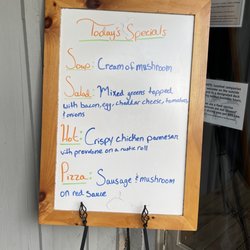 Today's Specials
Soup: Cream of mushroom
Salad: Mixed greens topped
with bacon, egg, cheddar cheese, tomatoes
+ onions
Hot: Crispy chicken parmesan
with provolone on a rustic roll
Pizza: Sausage + mushroom
on red sauce